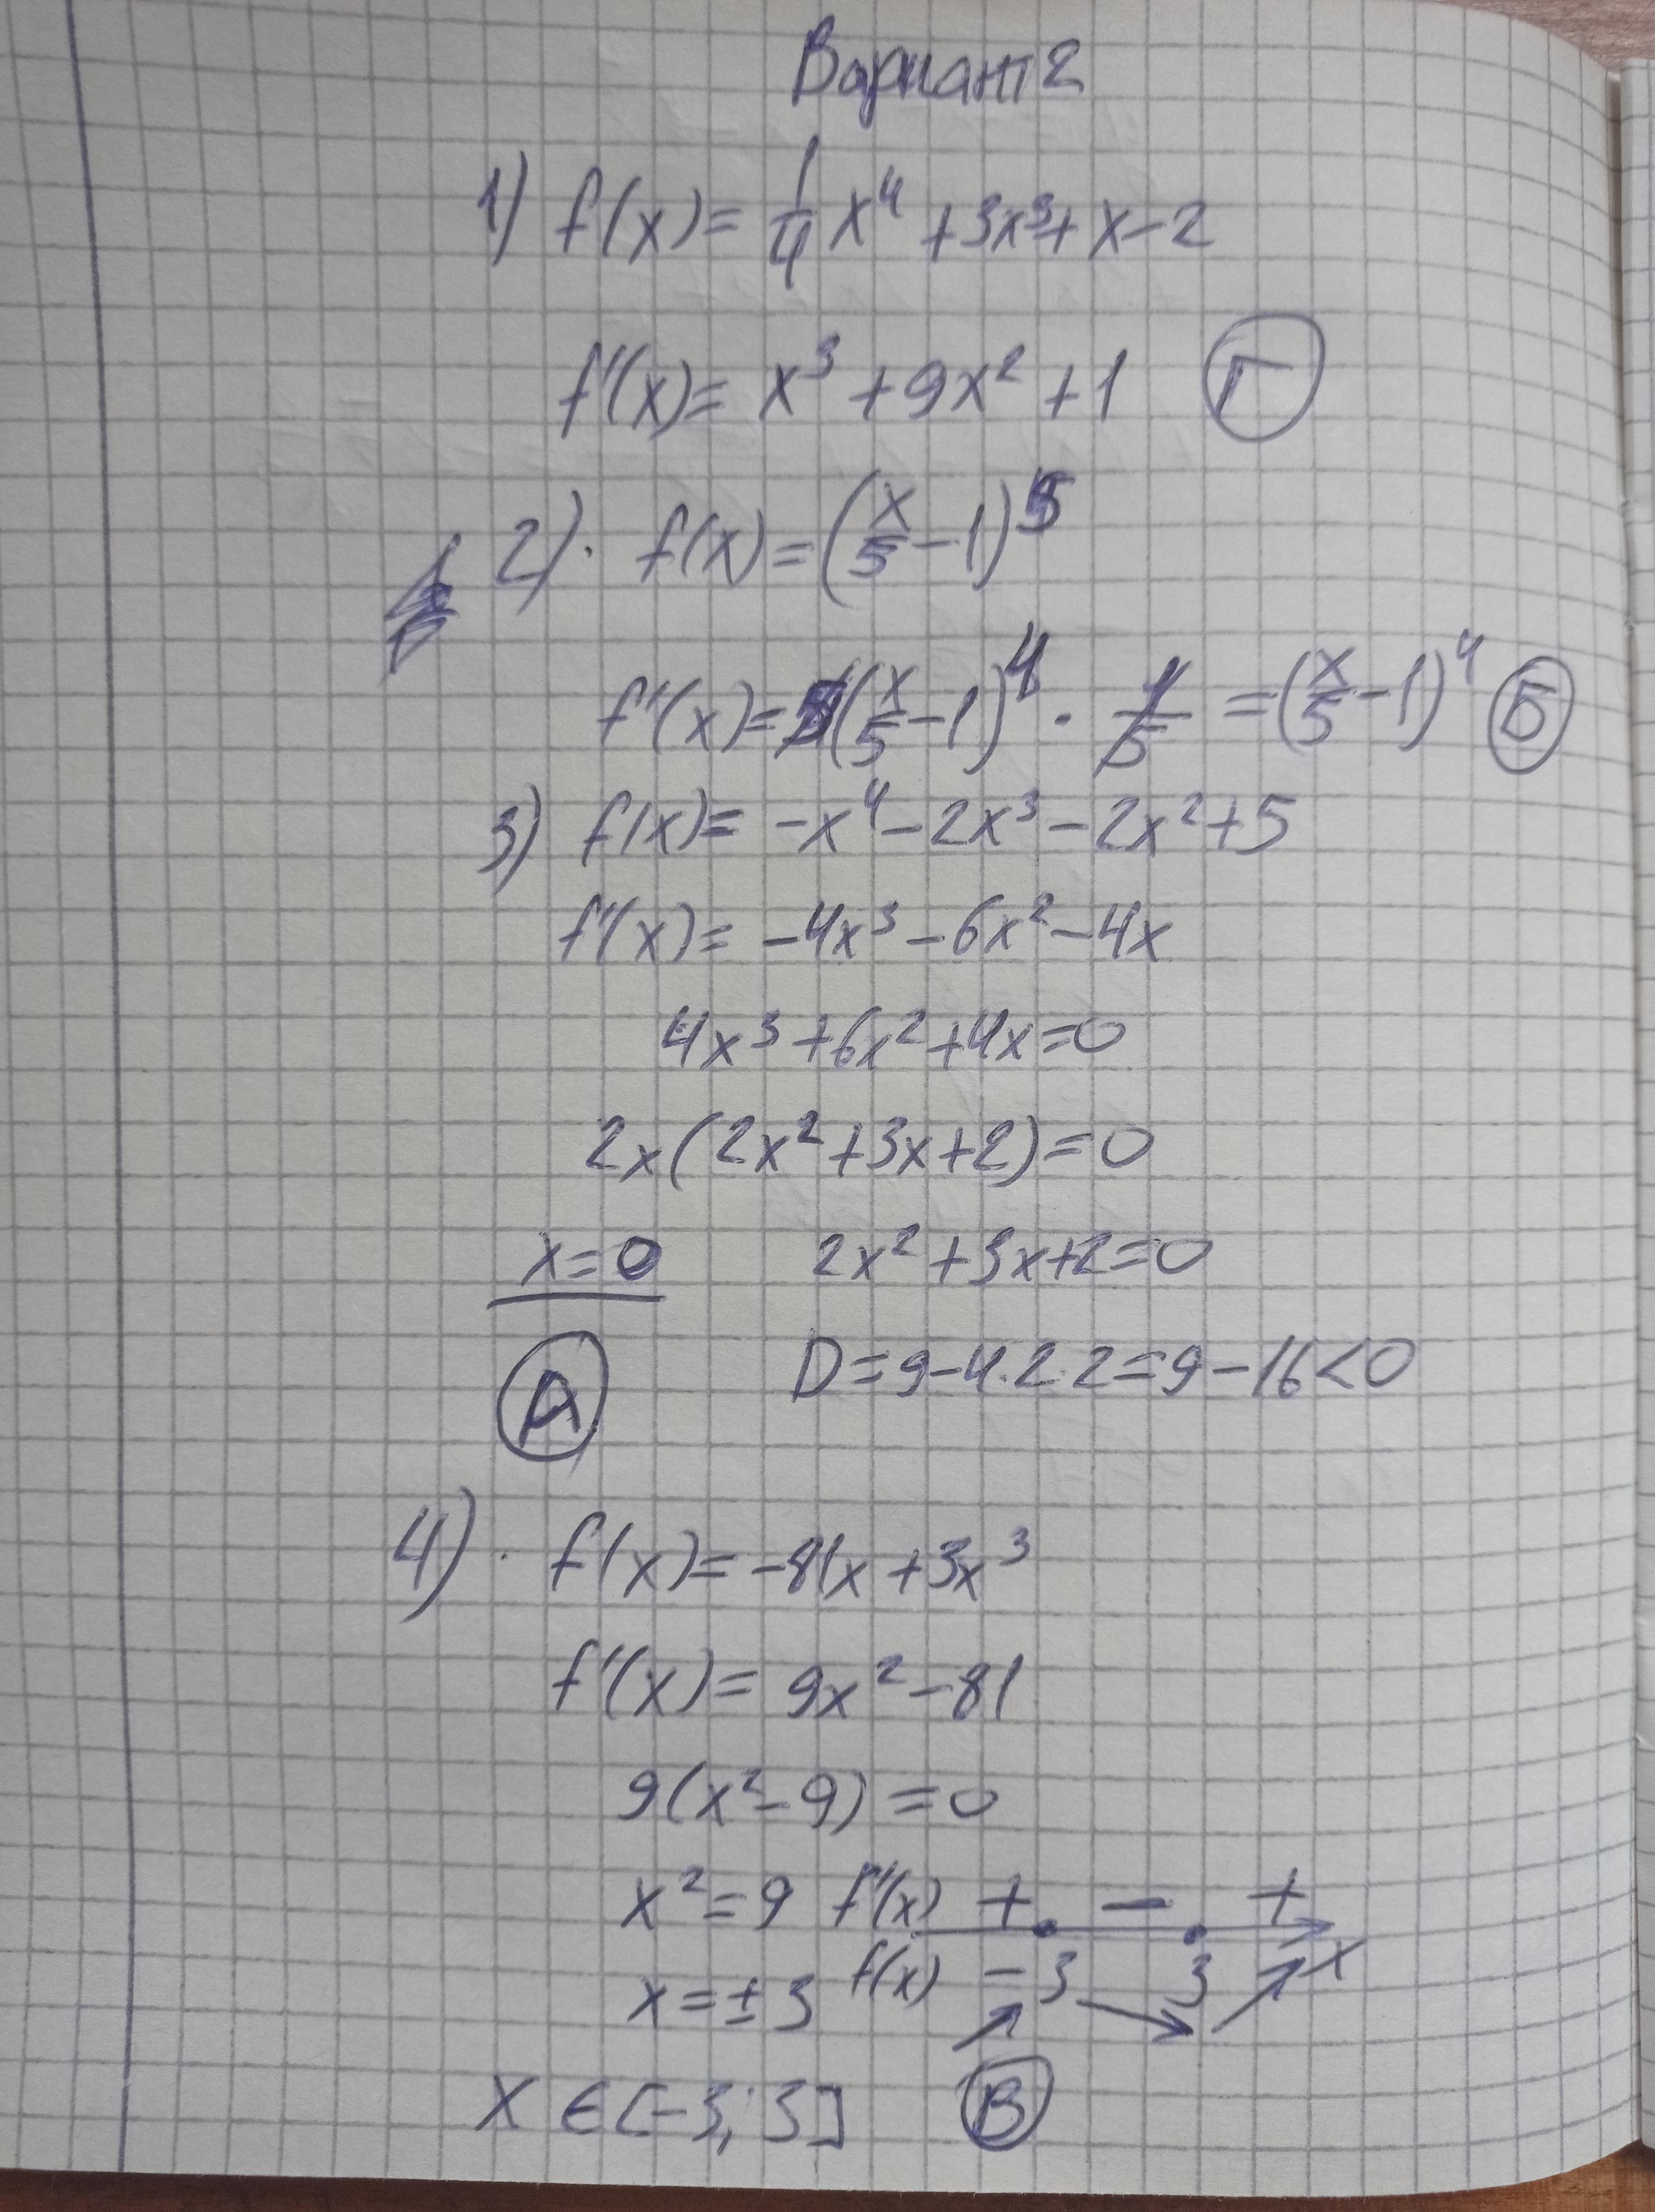 Вариант 2
1) f(x) = 1/4 x⁴ + 3x³ + x - 2
f'(x) = x³ + 9x² + 1 Г
2) f(x) = (x/5 - 1)⁵
f'(x) = 5(x/5 - 1)⁴ · 1/5 = (x/5 - 1)⁴ Б
3) f(x) = -x⁴ - 2x³ - 2x² + 5
f'(x) = -4x³ - 6x² - 4x
4x³ + 6x² + 4x = 0
2x(2x² + 3x + 2) = 0
x = 0 2x² + 3x + 2 = 0
А D = 9 - 4·2·2 = 9 - 16 < 0
4) f(x) = -81x + 3x³
f'(x) = 9x² - 81
9(x² - 9) = 0
x² = 9 f'(x) + - +
x = ±3 f(x) -3 3 x
x ∈ [-3; 3] В